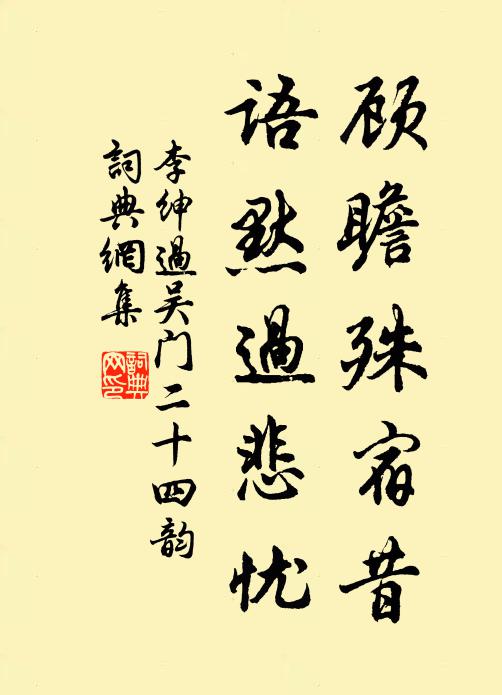 顾瞻殊宿昔
语默過悲忧
李绅過吴门二十四韵
詞典網集
詞典网印